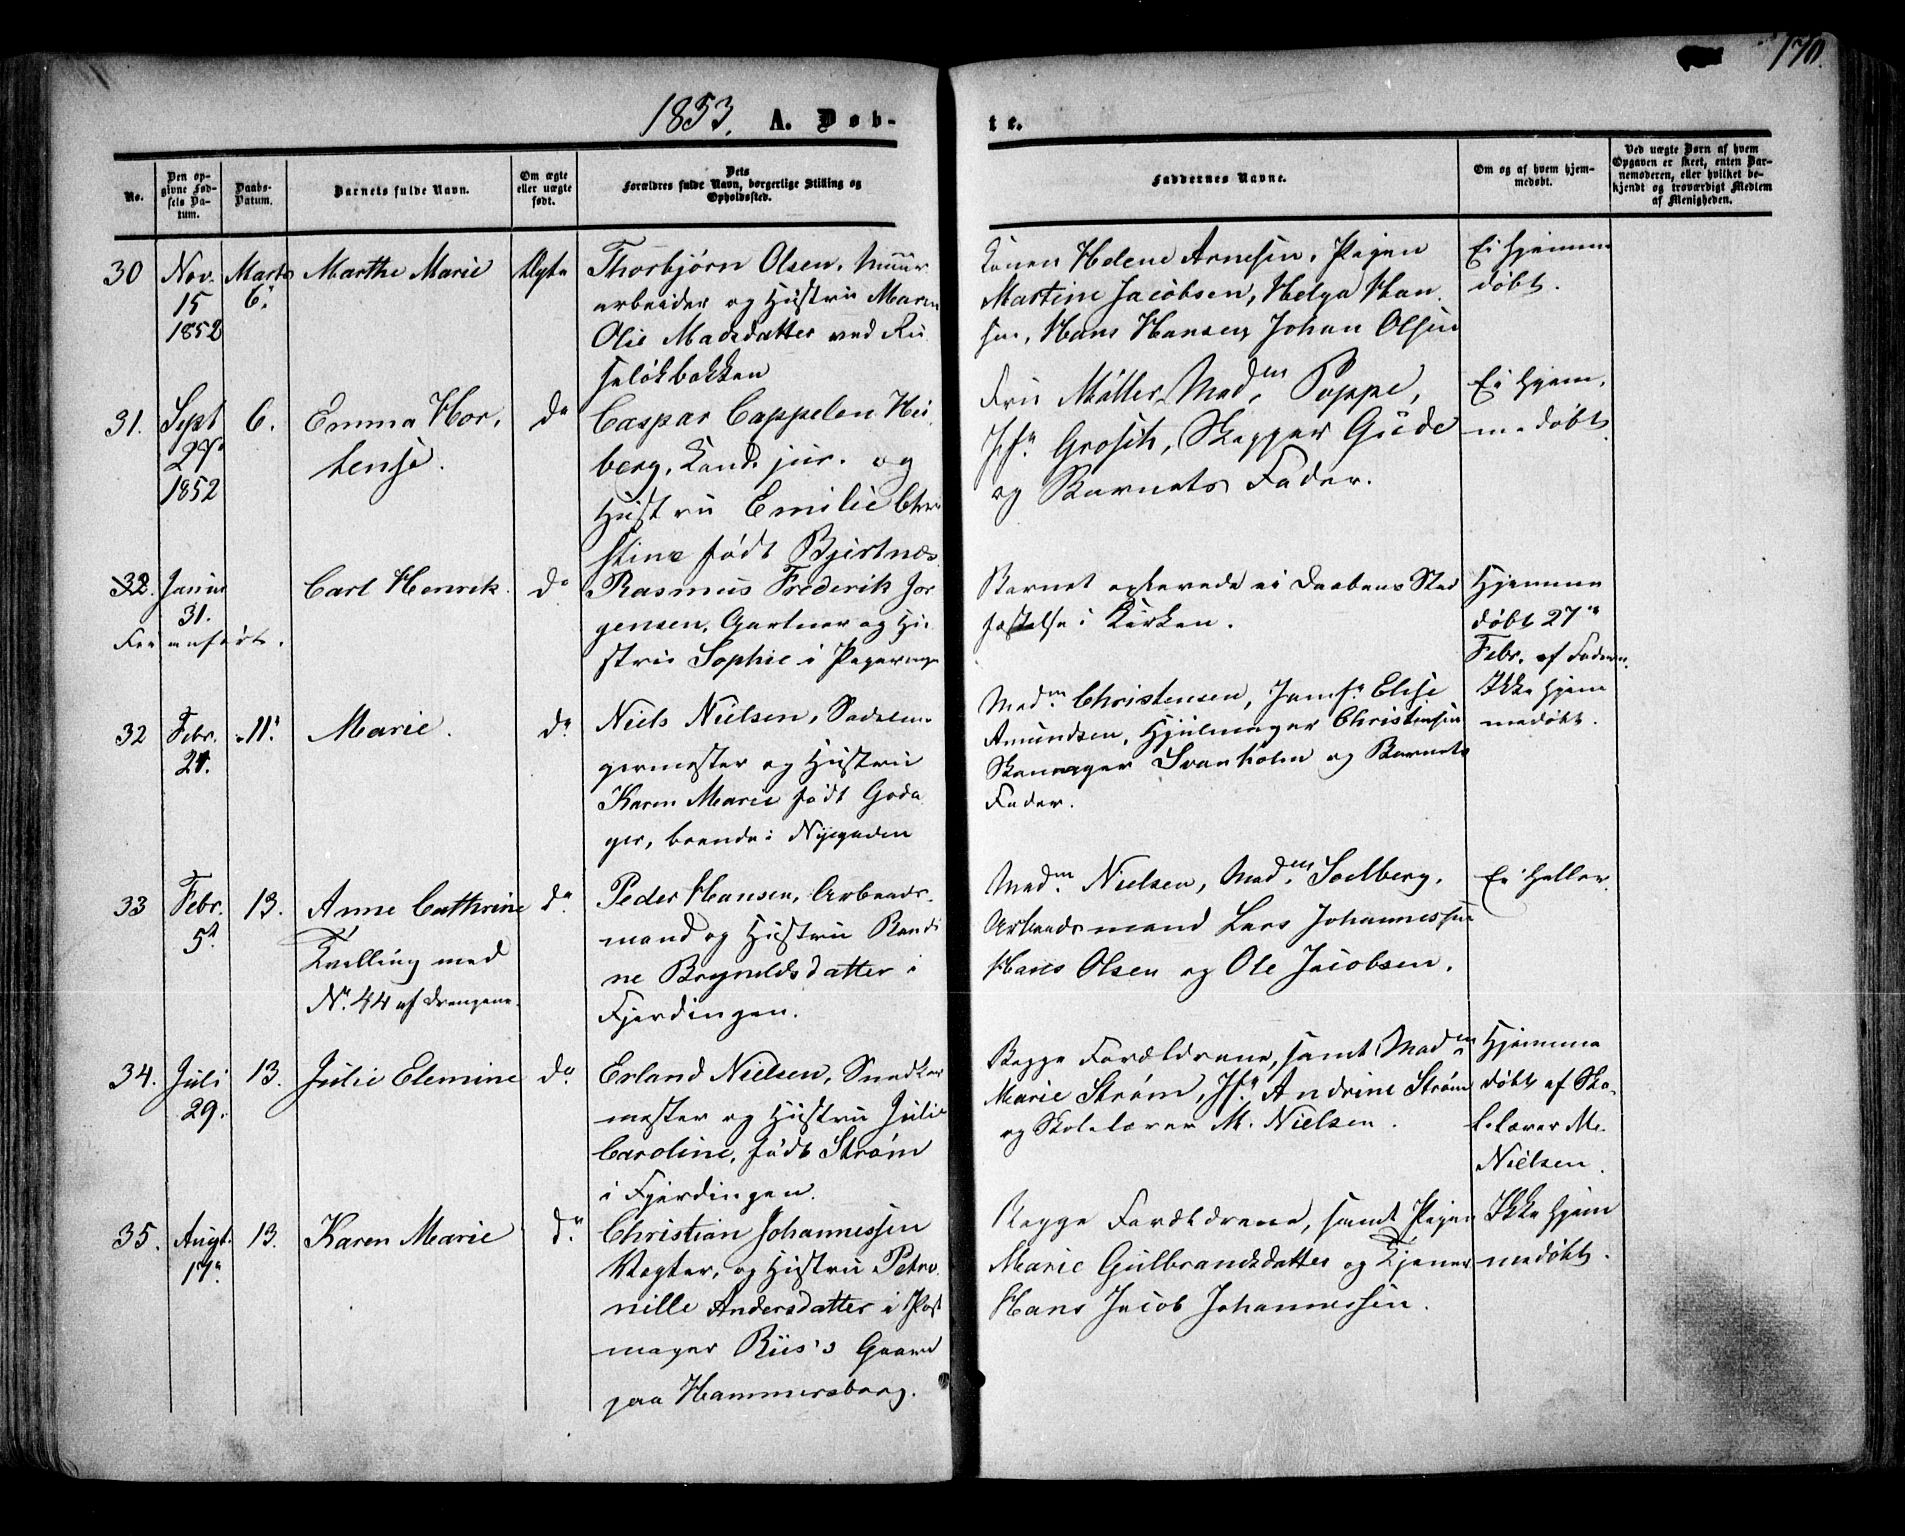 170.
1853. A. Døb- te.
No.
Den op-
givne Fød-
sels Da-
tum.
Daabs-
Datum.
Barnets fulde Navn.
Om ægte
eller uægte
født.
Dets
Forældres fulde Navn, borgerlige Stilling og
Opholdssted.
Faddernes Navne.
Om og af hvem hjem-
medøbt.
Ved uægte Børn af hvem
Opgaven er skeet, enten Bar-
nemoderen, eller hvilket be-
kjendt og troværdigt Medlem
af Menigheden.
30
Nov.
15
1852
Marts
6.
Marthe Marie
Ægte
Thorbjørn Olsen, Muur
arbeider og Hustru Maren
Olie Madsdatter ved Ru
seløkbakken
Konen Helene Arnesen, Pigen
Martine Jacobsen, Helga Han
sen, Hans Hansen, Johan Olsen
Ei hjemme
døbt.
31.
Sept
27
1852
6.
Emma Hor,
tense.
do
Caspar Cappelen Hei
berg, Kand. jur. og
Hustru Emilie Chri
stine født Bjertnæs
Fru Møller, Madm Poppe,
Jfr. Grosch, Skipper Gude
og Barnets Fader.
Ei hjem,
medøbt
32.
Januar
31.
Feil anført.
Carl Henrik.
do
Rasmus Frederik Jør
gensen, Gartner og Hu
stru Sophie i Pipervigen
Barnet opkrevede ei Daabens Stad
fæstelse i Kirken.
Hjemme
døbt 27de
Febr. af Faderen.
32
Febr.
21.
11.
Marie.
do
Niels Nielsen, Sadelma
germester og Hustru
Karen Marie født Goda
ger, boende i Nygaden
Madm Christensen, Jomfr. Elise
Amundsen, Hjulmager Christensen
Skomager Svanholm og Barnets
Fader.
Ikke hjem
medøbt.
33
Febr.
5t
13.
Anne Cathrine
Tvilling med
No. 44 af Drengene.
do
Peder Hansen, Arbeids-
mand og Hustru Randi
ne Brynildsdatter i
Fjerdingen.
Madm Nielsen, Madm Soelberg,
Arbeidsmand Lars Johannessen
Hans Olsen og Ole Jacobsen.
Ei heller.
34.
Juli
29.
13.
Julie Elemine
do
Erland Nielsen, Snedker
mester og Hustru Julie
Caroline, født Strøm
i Fjerdingen.
Begge Forældrene, samt Madm
Marie Strøm, Jfr. Andrine Strøm
og Skolelærer M. Nielsen.
Hjemme
døbt af Sko-
lelærer M.
Nielsen.
35.
Augt.
17.
13.
Karen Marie
do
Christian Johannessen
Vægter, og Hustru Petro
nille Andersdatter i Post
mager Riis's Gaard
paa Hammersborg.
Begge Forældrene, samt Pigen
Marie Gulbrandsdatter og Tjener
Hans Jacob Johannessen.
Ikke hjem
medøbt.